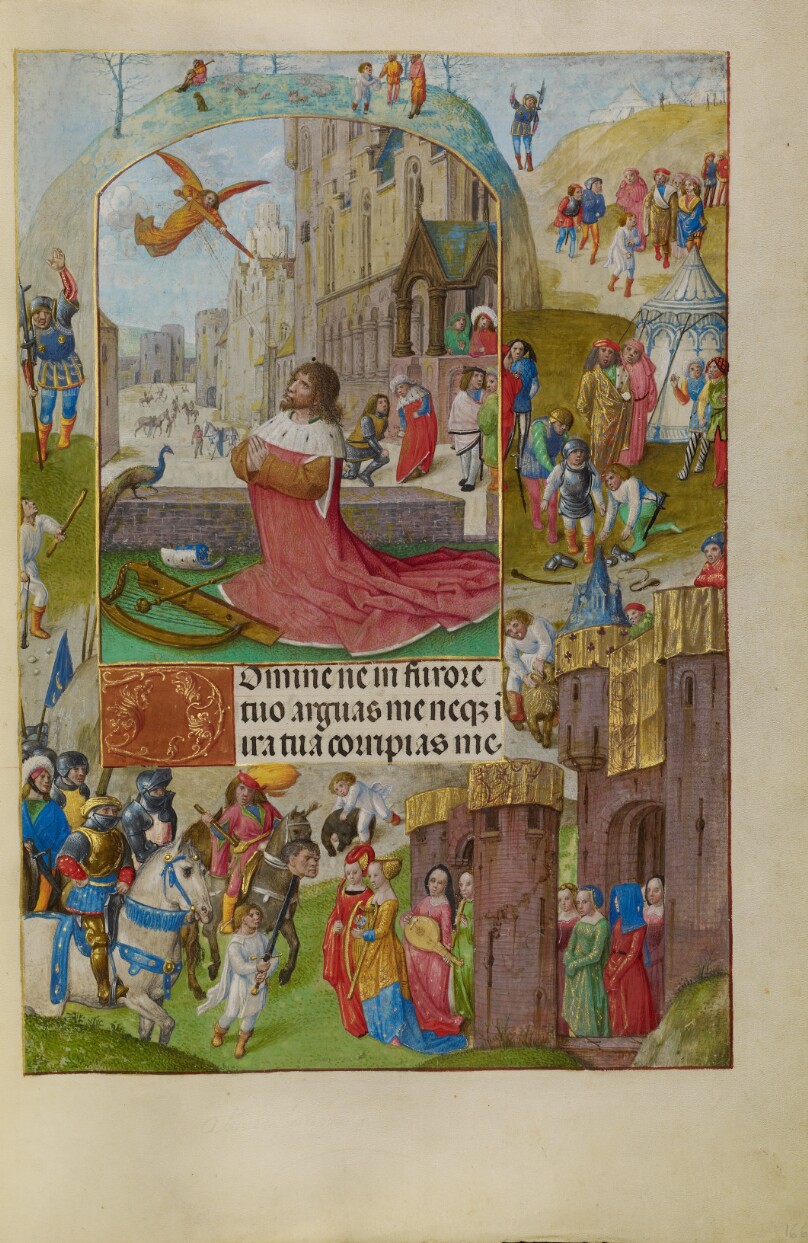 Domine ne in furore
tuo arguas me neqꝫ i
ira tuā corripias me
166